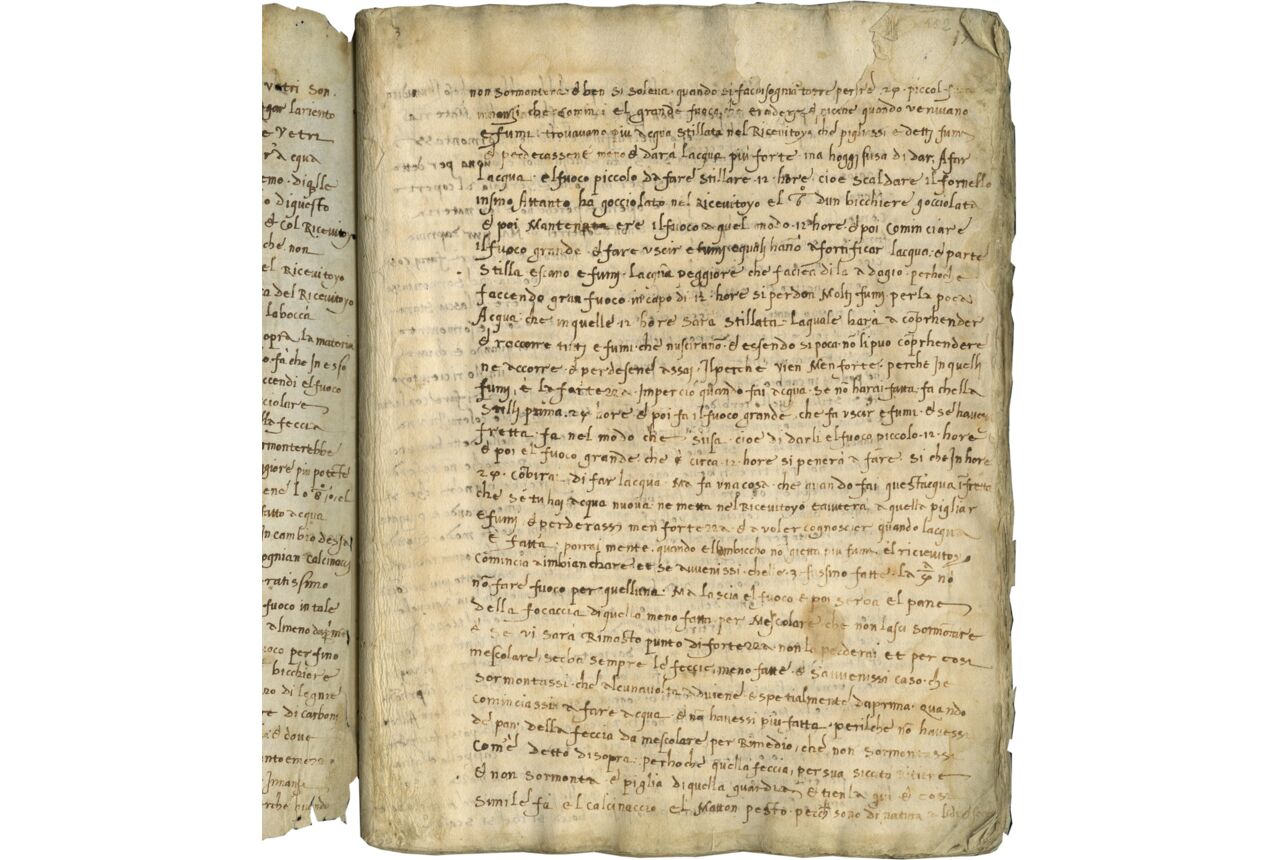 vetri son
lariento
e vetri
acqua
emo diqlle
o diquesto
e col Ricevitoyo
che non
el Ricevitoyo
ra del Ricevitoyo
la bocca
opra la materia
fa che In esso
ccendi el fuoco
ciolare
lla feccia
rmonterebbe
giore piu potete
fatto acqua
in cambio dessa
ognian calcinacci
ratissimo
fuoco in tale
almeno
oco per fino
bicchiere
no di legne
e di carboni
e dove
Innanzi
3 152
non sormontera e ben si soleva quando si facia sognia torre per re 24 piccol fuoco
innanzi che cominci el grande fuoco quando venivano
e fumi trovavano piu acqua stillata nel Ricevitoyo che pigliassi e detti fumi
e perdecassene meno e dara lacqua piu forte ma hoggi susa di dar A far
Lacqua el fuoco piccolo da fare stillare 12 hore cioe scaldare il fornello
insino Attanto ha gocciolato nel Ricevitoyo el dun bicchiere gocciolata
e poi Mantenere il fuoco a quel modo 12 hore e poi Cominciare
il fuoco grande e fare uscir e fumi equali hano Afortificar lacqua e parte
Stilla escano e fumi Lacqua peggiore che faciendila Adagio perhoche
faccendo gran fuoco in capo di 12 hore si perdon Molti fumi per la poca
Acqua che in quelle 12 hore sara stillata laquale hara a coprhender
e raccorre tutti e fumi che nuscirano e essendo si poca no li puo coprhendere
ne accorre e perdesene assaj Ilperche vien Men forte perche In quelli
fumi e la fortezza Impercio quando fai acqua se no harai fatta fa chella
Stilli prima 24 hore e poi fa il fuoco grande che fa uscir e fumi e se havessi
fretta fa nel modo che susa cioe di darli el fuoco piccolo 12 hore
e poi el fuoco grande che e circa 12 hore si penera a fare si che In hore
24 di far lacqua Ma fa una cosa che quando fai questacqua
che se tu hai acqua nuova ne metta nel Ricevitoyo e aiutera a quella pigliar
e fumi e perderassi men fortezza e a voler cognoscier quando lacqua
e fatta porrai mente quando ellambiccho no gietta piu fumi el ricievitoyo
Comincia aimbianchare et se avvenissi chelle 3 fussino fatte la no
no fare fuoco per quelluna Ma lascia el fuoco e poi serva el pane
della focaccia di quella meno fatta per Mescolare che non lasci sormontare
e se vi sara Rimasto punto di fortezza non la perderai et per cosi
mescolare serba sempre le feccie meno fatte e savvenissi caso che
sormontassi che alcuna volta adviene e spetialmente da prima quando
cominciassi a fare acqua e no havessi piu fatta perilche no havessi
de pan della feccia da mescolare per Rimedio che non sormontassi
Come detto disopra perhoche quella feccia per sua siccita Ritiere
e non sormonta e piglia di quella e tienla qui e cosi
Simile fa el calcinaccio el Matton pesto perche sono di natura